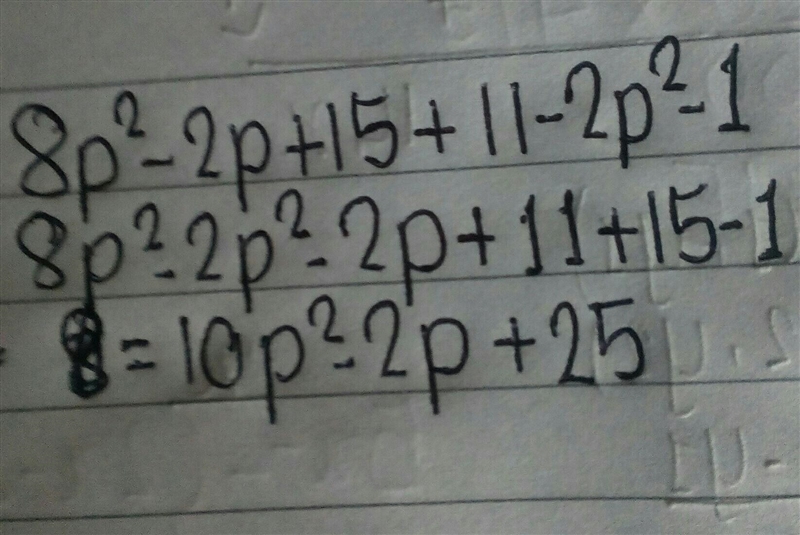 8p²-2p+15+11-2p²-1
8p²-2p²-2p+11+15-1
=10p²-2p+25